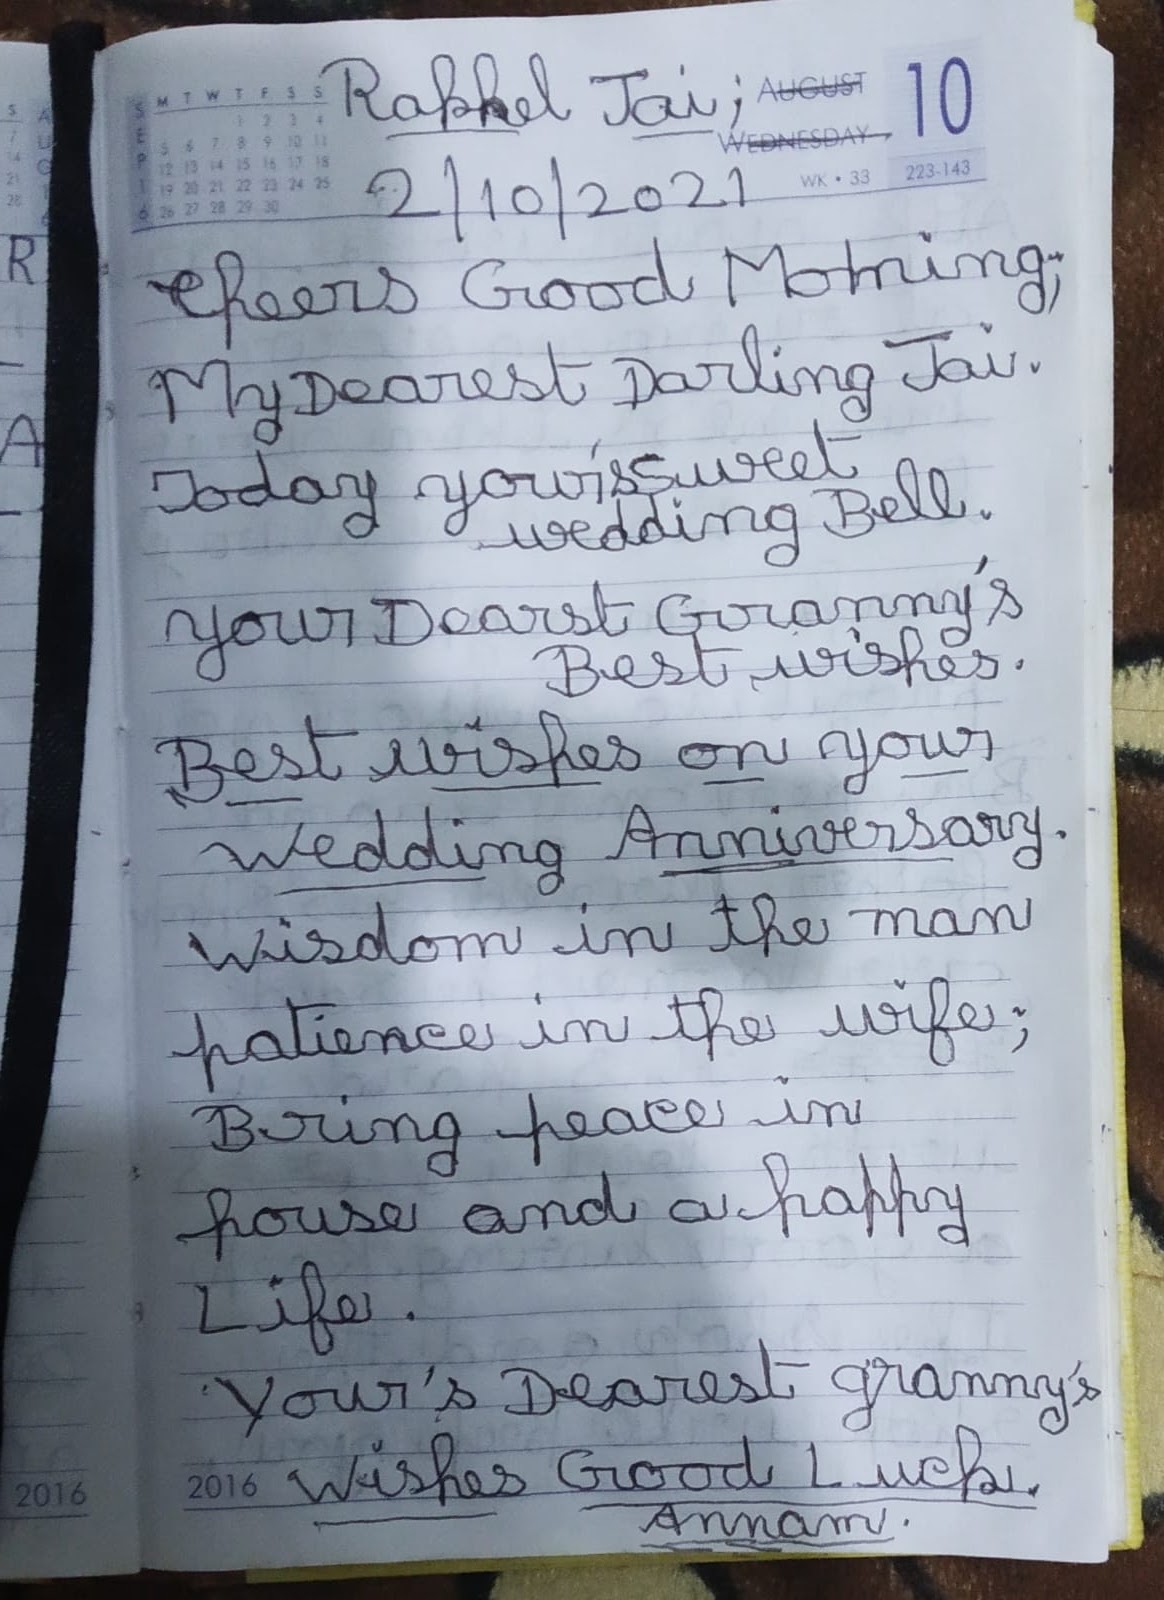 Raphel Jai;
AUGUST
WEDNESDAY
10
WK • 33
223-143
M T W T F S S
1 2 3 4
5 6 7 8 9 10 11
12 13 14 15 16 17 18
19 20 21 22 23 24 25
26 27 28 29 30
2/10/2021
Cheers Good Morning;
My Dearest Darling Jai.
Today your's Sweet
wedding Bell.
your Dearst Granny's
Best wishes.
Best wishes on your
Wedding Anniversary.
Wisdom in the man
patience in the wife;
Bring peace in
house and a happy
Life.
Your's Dearest granny's
Wishes Good Luck.
Annam.
2016
2016